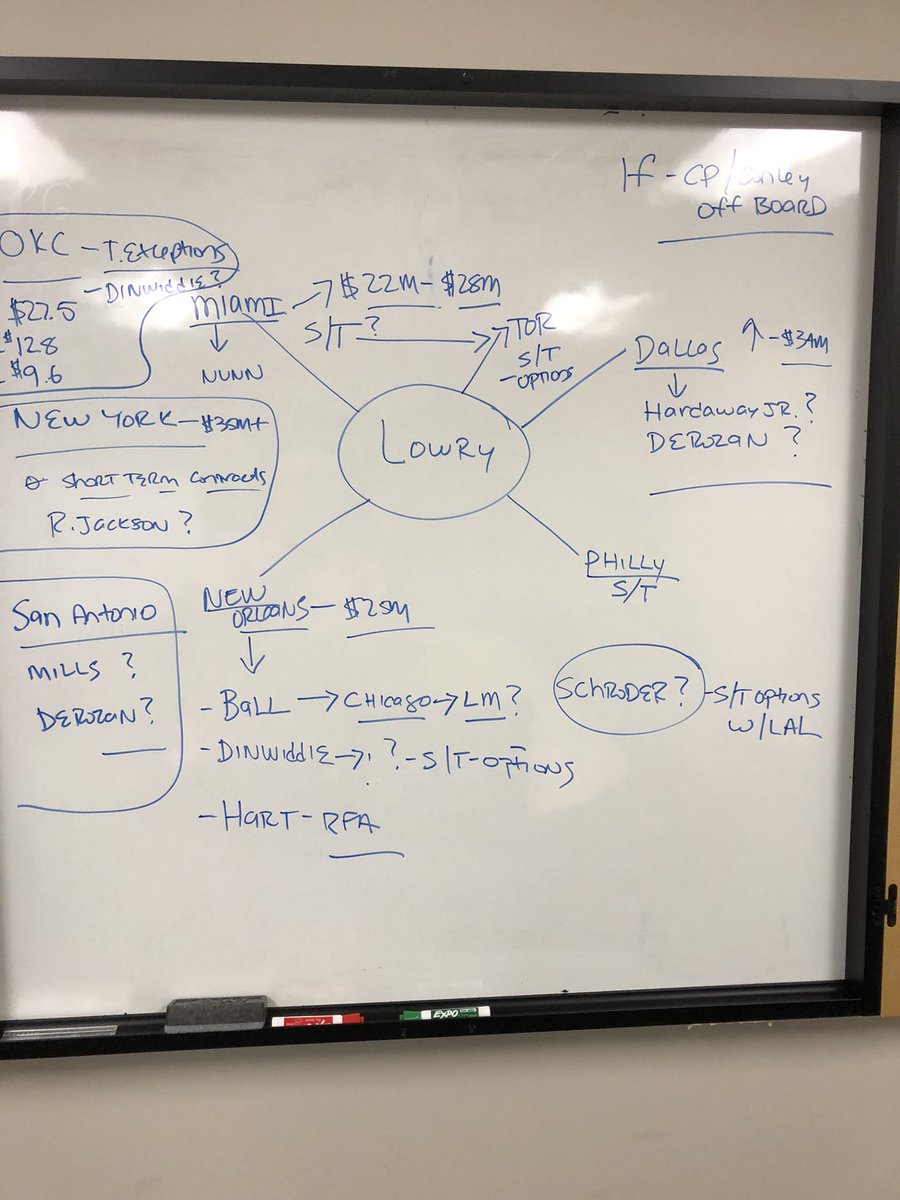 If - CP/Conley
OFF BOARD
OKC - T. Exceptions
- DINWIDDIE?
$27.5
$12.8
$9.6
MIAMI → $22M - $28M
S/T? → TOR
S/T
- OPTIONS
↓
NUNN
DALLAS ↑ - $34M
↓
Hardaway JR. ?
DEROZAN ?
LOWRY
NEW YORK - $35M+
SHORT TERM CONTRACTS
R. JACKSON ?
PHILLY
S/T
San Antonio
MILLS ?
DEROZAN ?
NEW
ORLEANS - $25M
↓
- BALL → CHICAGO → LM ?
- DINWIDDIE → ? - S/T - OPTIONS
- HART - RFA
SCHRODER? - S/T options
W/LAL
EXPO